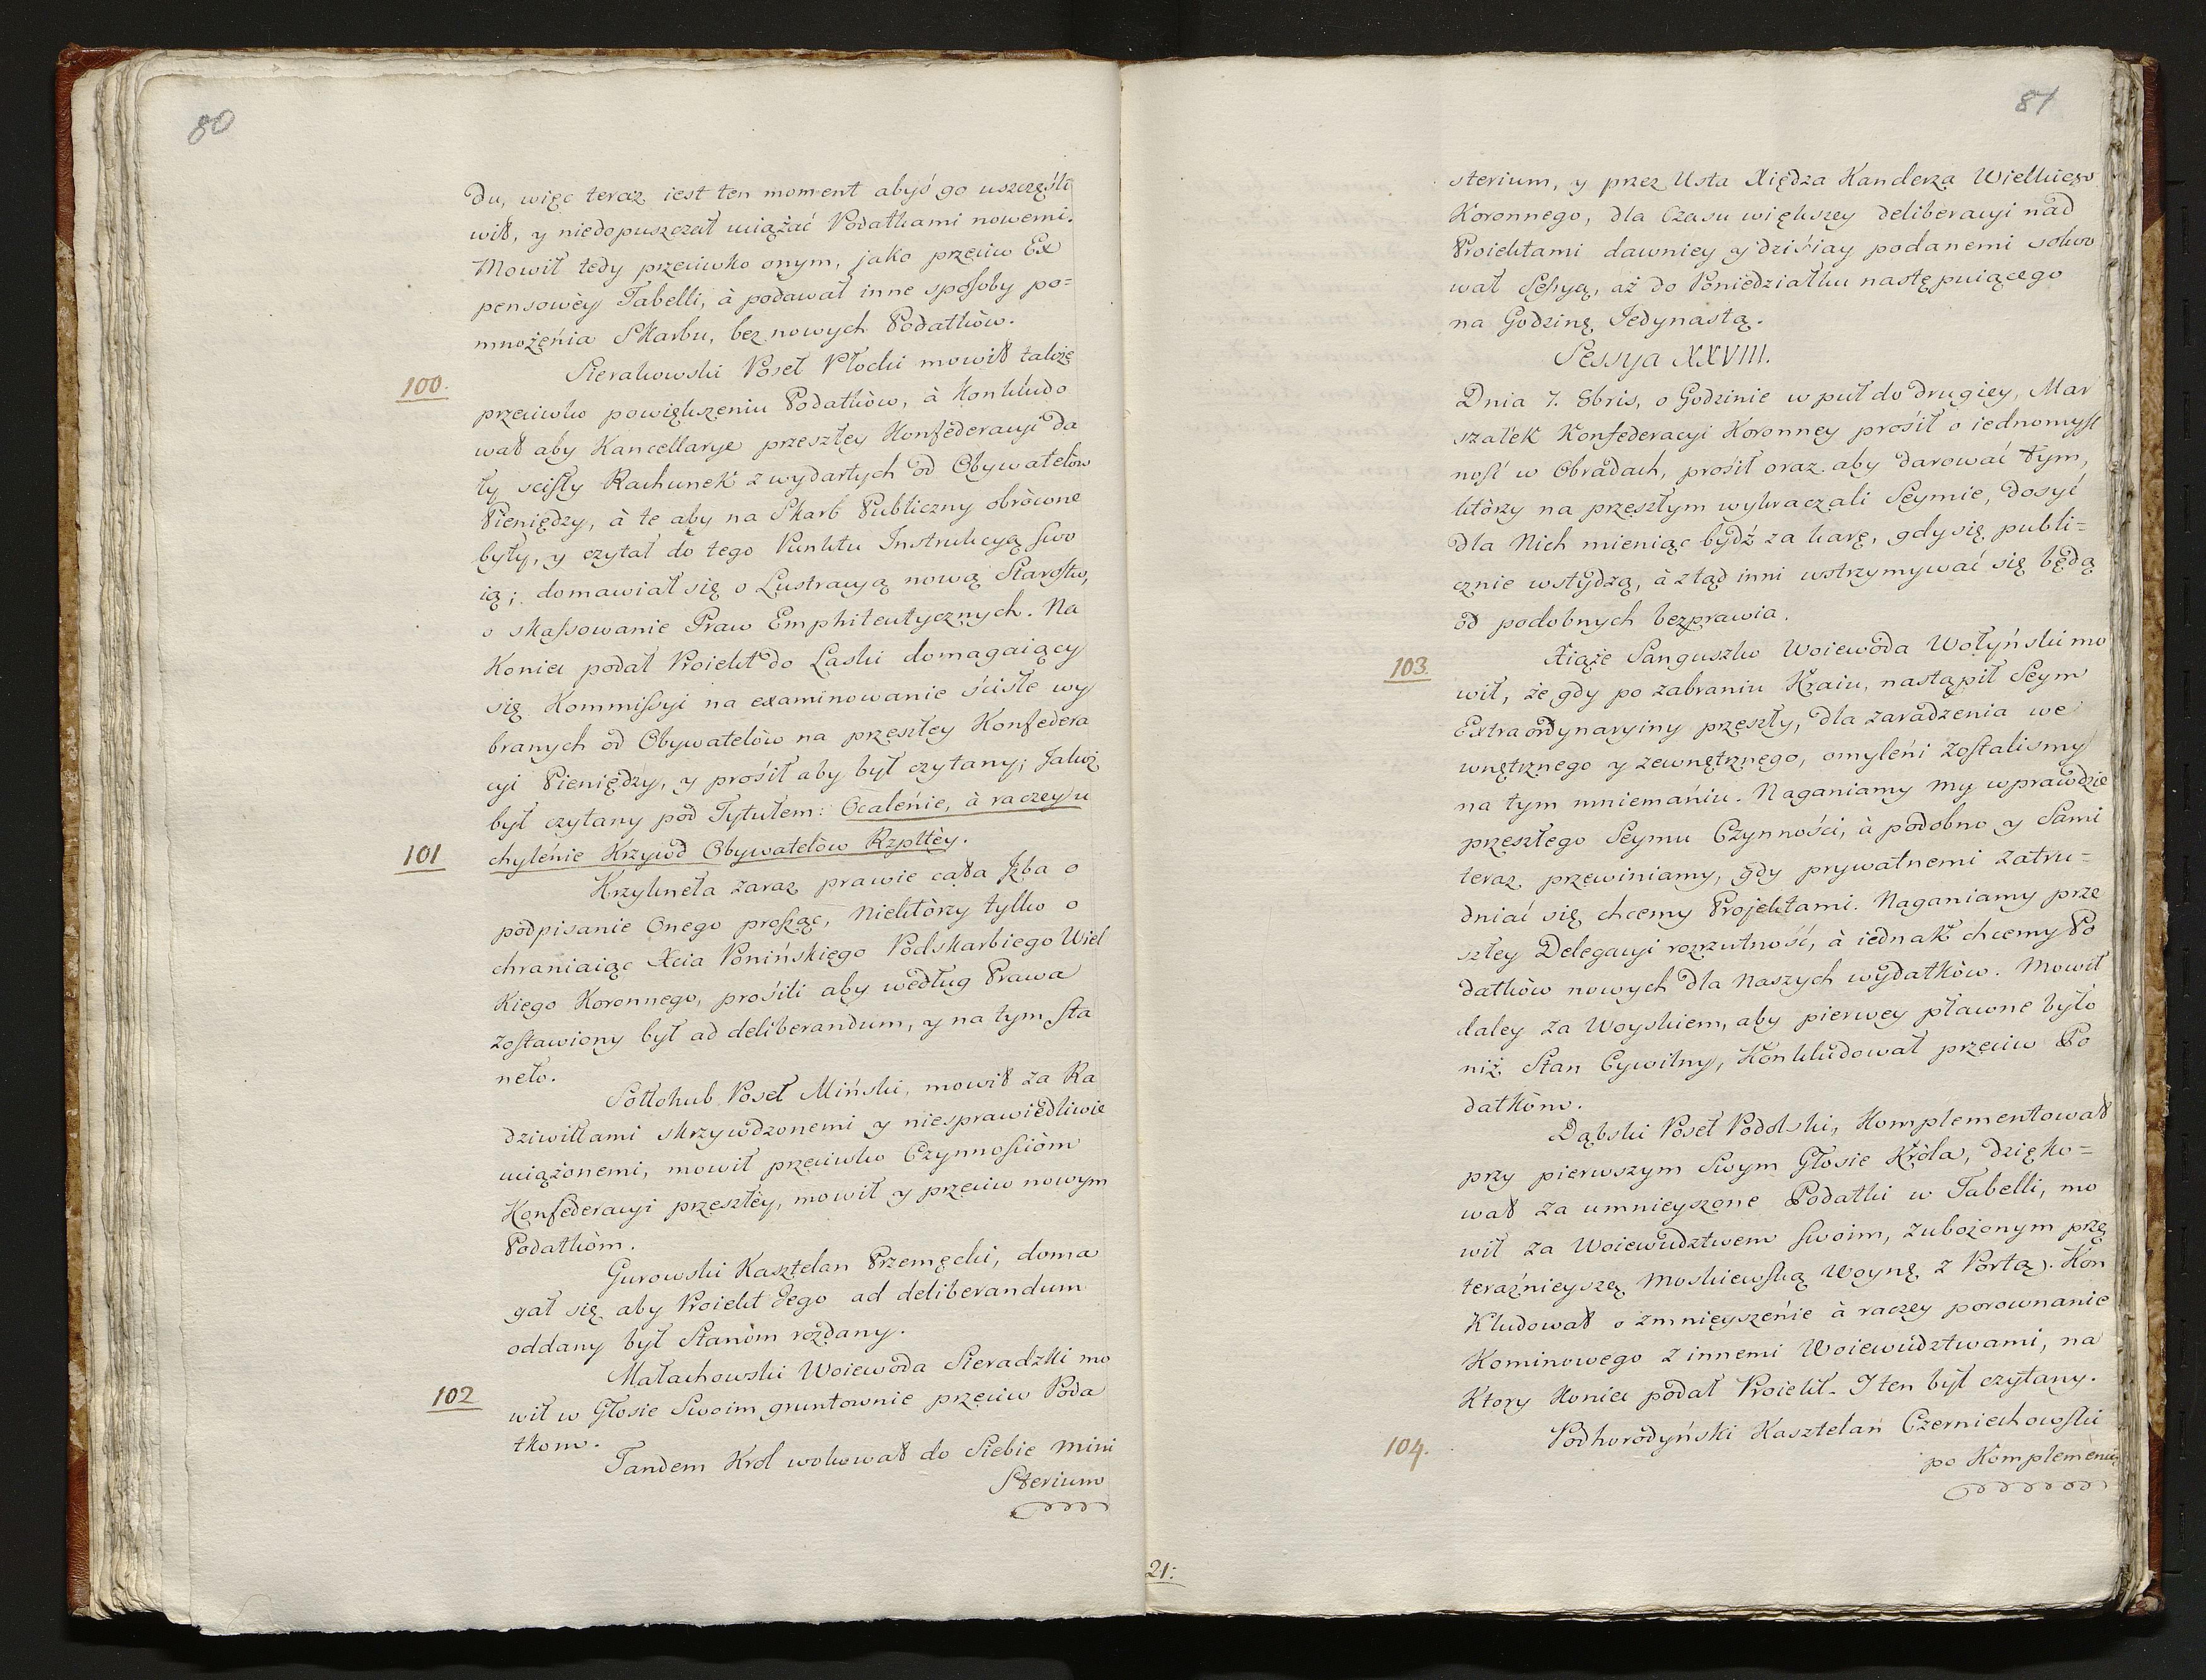 80
du, więc teraz iest ten moment abyś go uszczęśli
wił, y niedopuszczał uciążać Podatkami nowemi.
Mowił tedy przeciwko onym, jako przeciw Ex
pensowèy Tabelli, à podawał inne sposoby po=
mnożęnia Skarbu, bez nowych Podatkòw.
100.
Sierakowski Poseł Płocki mowił takżę
przeciwko powiększeniu Podatkòw, à Konkludo
wał aby Kancellarye przeszłey Konfederacyi da
ły scisły Rachunek z wydartych od Obywatelòw
Pieniędzy, à te aby na Skarb Publiczny obròcone
były, y czytał do tego Punktu Instrukcyą swo
ią; domawiał się o Lustracyą nową Starostw,
o skassowanie Praw Emphiteutycznych. Na
Koniec podał Proiekt do Laski domagaiący
się Kommissyi na examinowanie ściśle wy
branych od Obywatelòw na przeszłey Konfedera
cyi Pieniędzy, y prośił aby był czytany; Jakoż
był czytany pod Tytułem: Ocalenie, à raczey u
101
chylenie Krzywd Obywatelòw Rzpltèy.
Krzyknęła zaraz prawie cała Izba o
podpisanie Onego proszęc, Niektòrzy tylko o
chraniaiąc Xcia Ponińskięgo Podskarbiego Wiel
Kiego Koronnego, prośili aby według Prawa
zostawiony był ad deliberandum, y na tym sta
nęło.
Sołłohub Poseł Miński, mowił za Ra
dziwiłłami skrzywdzonemi y niesprawiedliwie
uciążonemi, mowił przeciwko Czynnościòm
Konfederacyi przeszłèy, mowił y przeciw nowym
Podatkòm.
Gurowski Kasztelan Przemęcki, doma
gał się aby Proiekt Jego ad deliberandum
oddany był Stanòm rozdany.
102
Małachowski Woiewoda Sieradzki mo
wił w Głosie Swoim gruntownie przeciw Poda
tkom.
Tandem Krol wokował do Siebie Mini
Sterium
81
sterium, y przez Usta Xiędza Kanclerza Wielkiego
Koronnego, dla Czasu większey deliberacyi nad
Proiektami dawniey y dziśiay podanemi solwo
wał Sessyą, aż do Poniedziałku następuiącego
na Godzinę Jedynastą.
Sessya XXVIII.
Dnia 7. 8bris, o Godzinie w puł do drugiey, Mar
szałek Konfederacyi Koronney prośił o iednomyśl
ność w Obradach, prośił oraz aby darować tym,
ktòrzy na przeszłym wykraczali Seymie, dosyć
dla Nich mieniąc bydź za karę, gdy się publi=
cznie wstydzą, à ztąd inni wstrzymywać się będą
od podobnych bezprawia.
103.
Xiąże Sanguszko Woiewoda Wołyński mo
wił, że gdy po zabraniu Kraiu, nastąpił Seym
Extraordynaryiny przeszły, dla zaradzenia we
wnętrznego y zewnętrznego, omyleni zostalismy
na tym mniemaniu. Naganiamy my wprawdzie
przeszłego Seymu Czynności, à podobno y Sami
teraz przewiniamy, gdy prywatnemi zatru=
dniać się chcemy Projektami. Naganiamy prze
szłey Delegacyi rozrzutność, à iednak chcemy Po
datkòw nowych dla Naszych wydatkòw. Mowił
daley za Woyskiem, aby pierwey płacone było
niż Stan Cywilny, Konkludował przeciw Po
datkòm.
Dąbski Poseł Podolski, Komplementował
przy pierwszym Swym Głosie Kròla, dzięko=
wał za umnieyszone Podatki w Tabelli, mo
wił za Woiewudztwem swoim, zubożonym przę
teraźnieyszą Moskiewską Woynę z Portą. Kon
Kludował o zmnieyszęnie à raczey porownanie
Kominowego z innemi Woiewudztwami, na
Ktory Koniec podał Proiekt. I ten był czytany.
104.
Podhorodyński Kasztelan Czerniechowski
po Komplemencie
21: